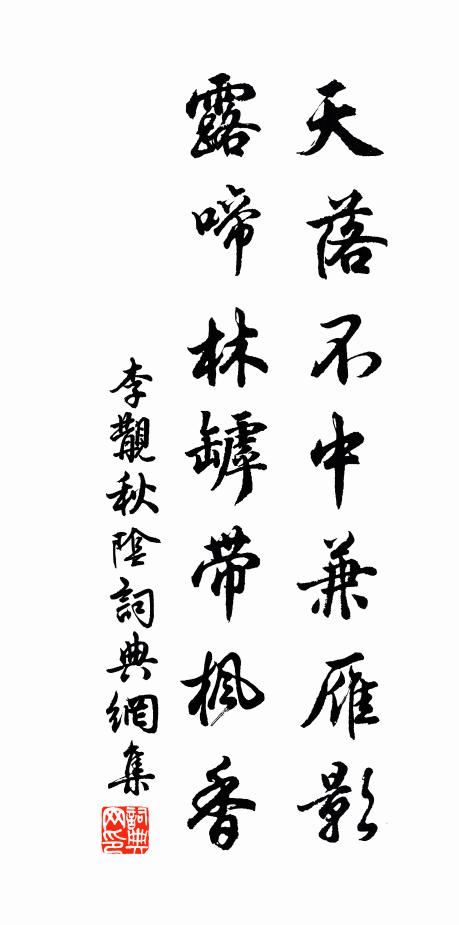 天落不中兼雁影
露啼林罅帶楓香
李觀秋陰詞典網集
詞典网印